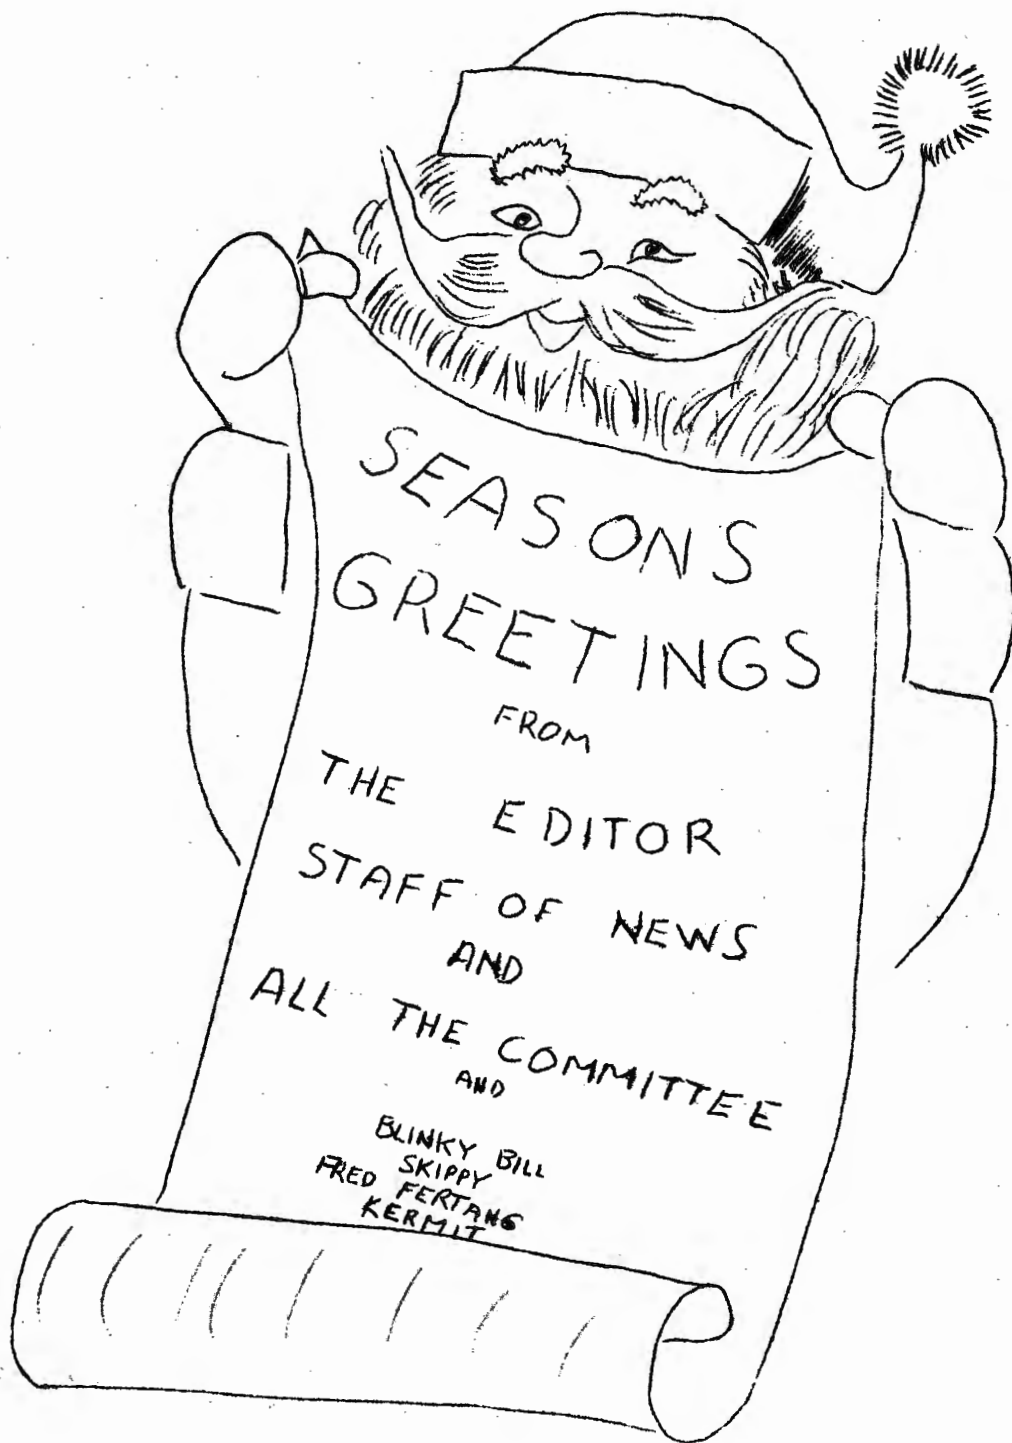 SEASONS
GREETINGS
FROM
THE EDITOR
STAFF OF NEWS
AND
ALL THE COMMITTEE
AND
BLINKY BILL
SKIPPY
FRED FERTANG
KERMIT